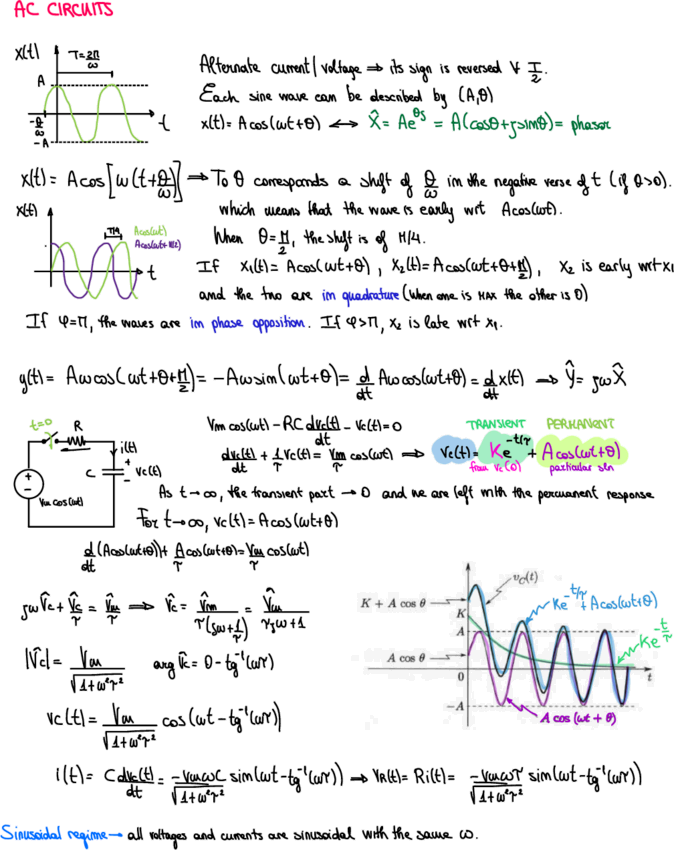 AC CIRCUITS
x(t) T=2π/ω
Alternate current/voltage ⇒ its sign is reversed ∀ T/2.
A
Each sine wave can be described by (A,θ)
-θ/ω t
x(t)= Acos(ωt+θ) ⟷ X̂ = Ae^θj = A(cosθ+jsinθ) = phasor
-A
x(t)= Acos[ω(t+θ/ω)] ⇒ To θ corresponds a shift of θ/ω in the negative verse of t (if θ>0).
x(t) which means that the wave is early wrt Acos(ωt).
T/4 Acos(ωt)
Acos(ωt+π/2)
When θ=π/2, the shift is of π/4.
t
If x₁(t)= Acos(ωt+θ), x₂(t)=Acos(ωt+θ+π/2), x₂ is early wrt x₁
and the two are in quadrature (when one is MAX the other is 0)
If φ=π, the waves are in phase opposition. If φ>π, x₂ is late wrt x₁.
y(t)= Aωcos(ωt+θ+π/2)= -Aωsin(ωt+θ)= d/dt Aωcos(ωt+θ) = d/dt x(t) ⇒ Ŷ= jωX̂
t=0 R i(t) C + vc(t) - + - Vm cos(ωt)
Vm cos(ωt) - RC dvc(t)/dt - vc(t)=0
TRANSIENT PERMANENT
dvc(t)/dt + 1/τ vc(t)= Vm/τ cos(ωt) ⇒ vc(t)= Ke^-t/τ + Acos(ωt+θ)
from vc(0) particular sln
As t→∞, the transient part →0 and we are left with the permanent response
For t→∞, vc(t)= Acos(ωt+θ)
d/dt (Acos(ωt+θ))+ A/τ cos(ωt+θ)= Vm/τ cos(ωt)
jωV̂c + V̂c/τ = V̂m/τ ⇒ V̂c = V̂m/τ(jω+1/τ) = V̂m/τjω+1
vC(t)
Ke^-t/τ + Acos(ωt+θ)
K + A cos θ
K
A
Ke^-t/τ
A cos θ
0 t
-A
A cos (ωt + θ)
|V̂c|= Vm/√1+ω²τ² arg V̂c= 0 - tg⁻¹(ωτ)
vc(t)= Vm/√1+ω²τ² cos(ωt - tg⁻¹(ωτ))
i(t)= C dvc(t)/dt = -VmωC/√1+ω²τ² sin(ωt-tg⁻¹(ωτ)) ⇒ vR(t)= Ri(t)= -Vmωτ/√1+ω²τ² sin(ωt-tg⁻¹(ωτ))
Sinusoidal regime → all voltages and currents are sinusoidal with the same ω.